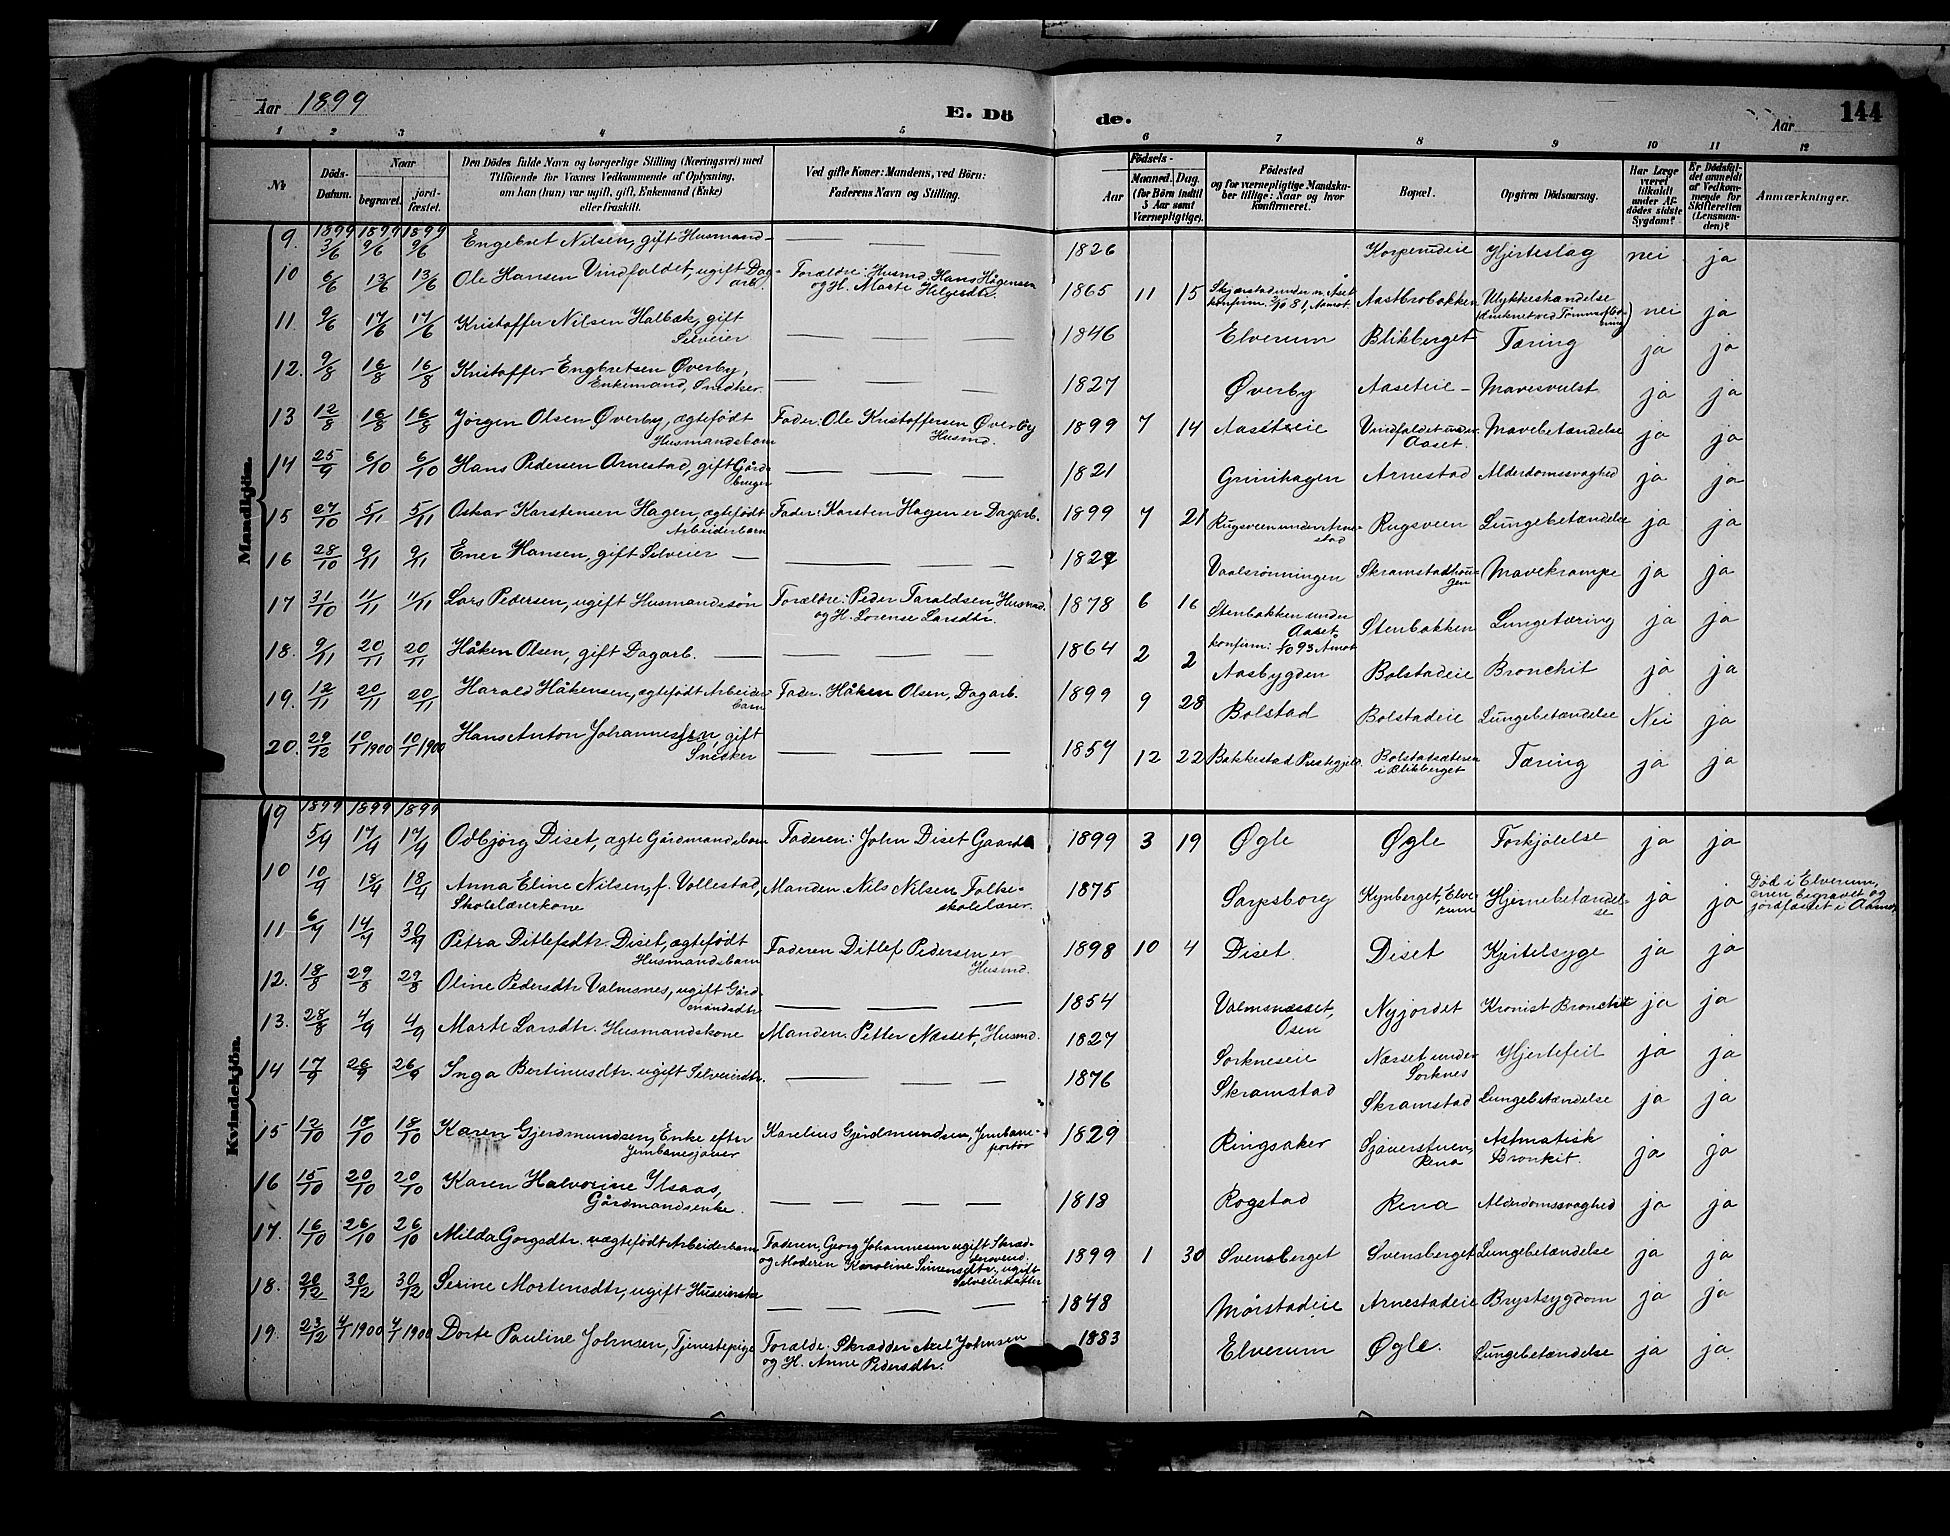 Aar 1899 E. Dö de. Aar 144
1 2 3 4 5 6 7 8 9 10 11 12
№ Döds-Datum. Naar begravet. jordfæstet. Den Dödes fulde Navn og borgerlige Stilling (Næringsvei) med Tilföiende for Voxnes Vedkommende af Oplysning, om han (hun) var ugift, gift, Enkemand (Enke) eller fraskilt. Ved gifte Koner: Mandens, ved Börn: Faderens Navn og Stilling. Födsels- Aar Maaned. Dag. (for Börn indtil 5 Aar samt Værnepligtige). Födested og for værnepligtige Mandskaber tillige: Naar og hvor konfirmeret. Bopæl. Opgiven Dödsaarsag. Har Læge været tilkaldt under Afdödes sidste Sygdom? Er Dödsfaldet anmeldt af Vedkommende for Skifteretten (Lensmanden)? Anmærkninger.
Mandkjön.
1899 1899 1899
9. 3/6 9/6 9/6 Engebret Nilsen, gift Husmand — — — 1826 Korpenideie Hjerteslag nei ja
10 6/6 13/6 13/6 Ole Hansen Vindfaldet, ugift Dagarb. Forældre: Husmd. Hans Hågensen og H. Marte Helgesdtr. 1865 11 15 Skjærstad under n. Åset konfirm. 2/10 81, Aamot Aastbrobakken Ulykkeshændelse (druknet ved Tømmerflødning) nei ja
11. 9/6 17/6 17/6 Kristoffer Nilsen Halbæk, gift Selveier — — — 1846 Elverum Blikberget Tæring ja ja
12. 9/8 16/8 16/8 Kristoffer Engbretsen Øverby, Enkemand, Snedker. — — — 1827 Øverby Aaseteie Mavesvulst ja ja
13 12/8 16/8 16/8 Jörgen Olsen Øverby, ægtefödt Husmandsbarn Fader: Ole Kristoffersen Øverby Husmd. 1899 7 14 Aasteie Vindfaldet under Aaset Mavebetændelse ja ja
14 25/9 6/10 6/10 Hans Pedersen Arnestad, gift Gårdbruger — — 1821 Grinihagen Arnestad Alderdomssvaghed ja ja
15 27/10 5/11 5/11 Oskar Karstensen Hagen, ægtefödt Arbeiderbarn Fader: Karsten Hagen er Dagarb. 1899 7 21 Rugsveen under Arnestad Rugsveen Lungebetændelse ja ja
16 28/10 9/11 9/11 Ener Hansen, gift Selveier — — — — 1827 Vaalsrönningen Skramstadhaugen Mavekrampe ja ja
17 31/10 11/11 11/11 Lars Pedersen, ugift Husmandssön Forældre: Peder Taraldsen, Husmd. og H. Lorense Larsdtr. 1878 6 16 Stenbakken under Aaset konfirm: 1/10 93 Amot Stenbakken Lungetæring ja ja
18. 9/11 20/11 20/11 Håken Olsen, gift Dagarb. — — — — 1864 2 2 Aasbygden Bolstadeie Bronchit ja ja
19. 12/11 20/11 20/11 Harald Håkensen, ægtefödt Arbeiderbarn Fader: Håken Olsen, Dagarb. 1899 9 28 Bolstad Bolstadeie Lungebetændelse Nei ja
20. 29/12 10/1 1900 10/1 1900 Hans Anton Johannessen, gift Snedker — — — 1857 12 22 Bakkestad Prestegjeld. Bolstadsæteren i Blikberget Tæring ja ja
Kvindekjön.
1899 1899 1899
9 5/4 17/4 17/4 Odbjörg Diset, ægte Gårdmandsbarn Faderen: John Diset Gaard 1899 3 19 Øgle Øgle Forkjölelse ja ja
10 10/4 18/4 18/4 Anna Eline Nilsen, f. Vollestad, Skolelærerkone Manden: Nils Nilsen Folkeskolelærer. 1875 Sarpsborg Kynberget, Elverum Hjernebetændelse ja ja Död i Elverum, men begravet og jordfæstet i Aamot
11 6/4 14/4 30/4 Petra Ditlefsdtr. Diset, ægtefödt Husmandsbarn Faderen Ditlef Pedersen er Husmd. 1898 10 4 Diset. Diset Kjertelsyge ja ja
12. 18/8 29/8 29/8 Oline Pedersdtr Valmsnes, ugift Gårdmandsdtr — — — 1854 Valmsnæsset, Osen Nyjordet Kronist Bronchit ja ja
13. 28/8 4/9 4/9 Marte Larsdtr. Husmandskone Manden: Petter Næsset, Husmd. 1827 Sorkneseie Næsset under Sorknes Hjertefeil ja ja
14 17/9 26/9 26/9 Inga Bertinusdtr. ugift Selveierdtr. — — — 1876 Skramstad Skramstad Lungebetændelse ja ja
15 12/10 18/10 18/10 Karen Gjerdmundsen, Enke efter Jernbanesjauer Karelius Gjerdmundsen, Jernbaneportör 1829 Ringsaker Sjauerstuen, Rena Astmatisk Bronkit. ja ja
16 15/10 20/10 20/10 Karen Halvorine Ilsaas, Gårdmandsenke. — — — — 1818 Rogstad Rena Alderdomssvaghed ja ja
17. 16/10 26/10 26/10 Milda Gorgsdtr. uægtefödt Arbeiderbarn Faderen: Georg Johannesen ugift Skræddersvend. og Moderen Karoline Simensdtr. ugift Selveierdatter 1899 1 30 Svensberget Svensberget Lungebetændelse ja ja
18. 20/12 30/12 30/12 Serine Mortensdtr, ugift Huseierske — — — — 1848 Mörstadeie Arnestadeie Brystsygdom ja ja
19. 23/12 4/1 1900 4/1 1900 Dorte Pauline Johnsen, Tjenestepige Foralde: Skradder Axel Johnsen og H. Anne Pedersdtr. 1883 Elverum Øgle. Lungebetændelse ja ja